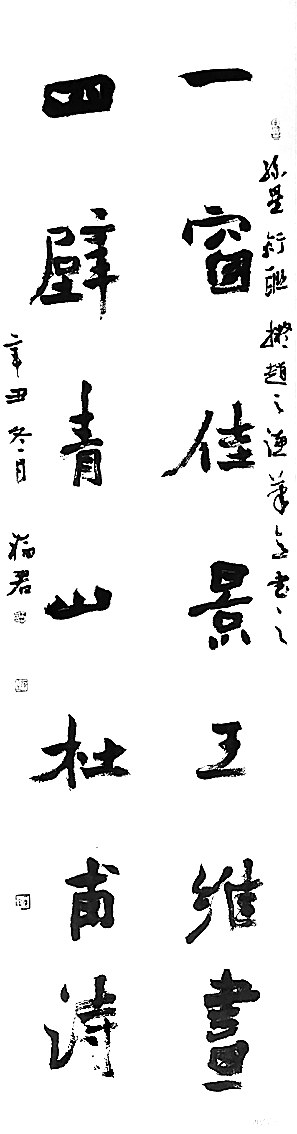 孫星衍聯 擬趙之謙筆意書之
一窗佳景王維畫
四壁青山杜甫詩
辛丑冬月